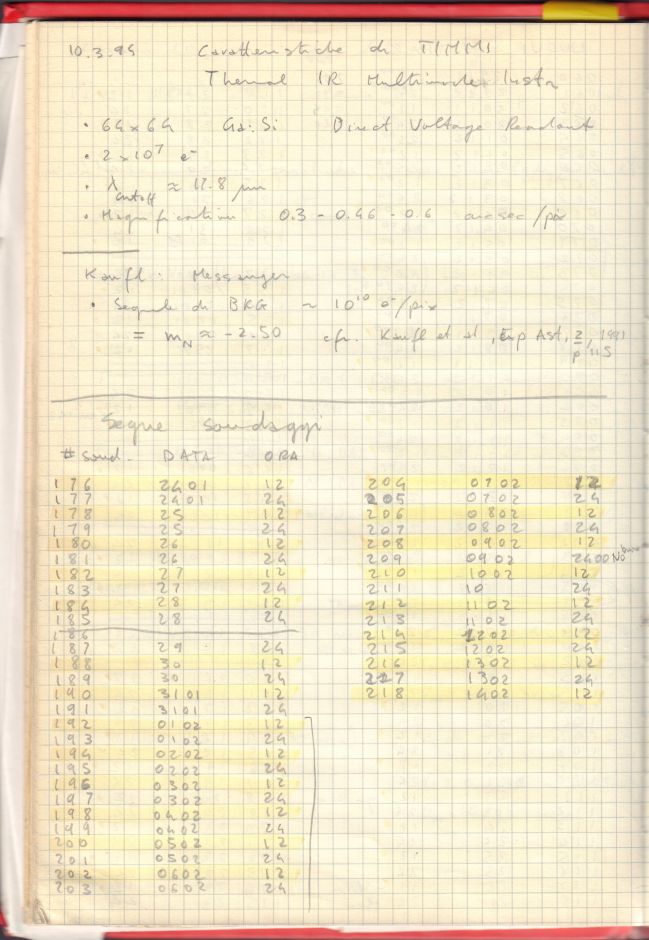 10.3.94 Caratteristiche di TIMMI
Thermal IR Multimode Instr
• 64x64 Ga:Si Direct Voltage Readout
• 2x10⁷ e⁻
• λcutoff ≈ 17.8 μm
• Magnification 0.3 - 0.46 - 0.6 arcsec/pix
Kaufl: Messanger
• Segnale di BKG ~ 10¹⁰ e⁻/pix
= mN ≈ -2.50 cfr. Kaufl et al, Exp Ast, 2, 1991
p 115
Segue sondaggi
# sond. DATA ORA
176 2401 12
177 2401 24
178 25 12
179 25 24
180 26 12
181 26 24
182 27 12
183 27 24
184 28 12
185 28 24
186
187 29 24
188 30 12
189 30 24
190 3101 12
191 3101 24
192 0102 12
193 0102 24
194 0202 12
195 0202 24
196 0302 12
197 0302 24
198 0402 12
199 0402 24
200 0502 12
201 0502 24
202 0602 12
203 0602 24
204 0702 12
205 0702 24
206 0802 12
207 0802 24
208 0902 12
209 0902 2400 No
210 1002 12
211 10 24
212 1102 12
213 1102 24
214 1202 12
215 1202 24
216 1302 12
217 1302 24
218 1402 12